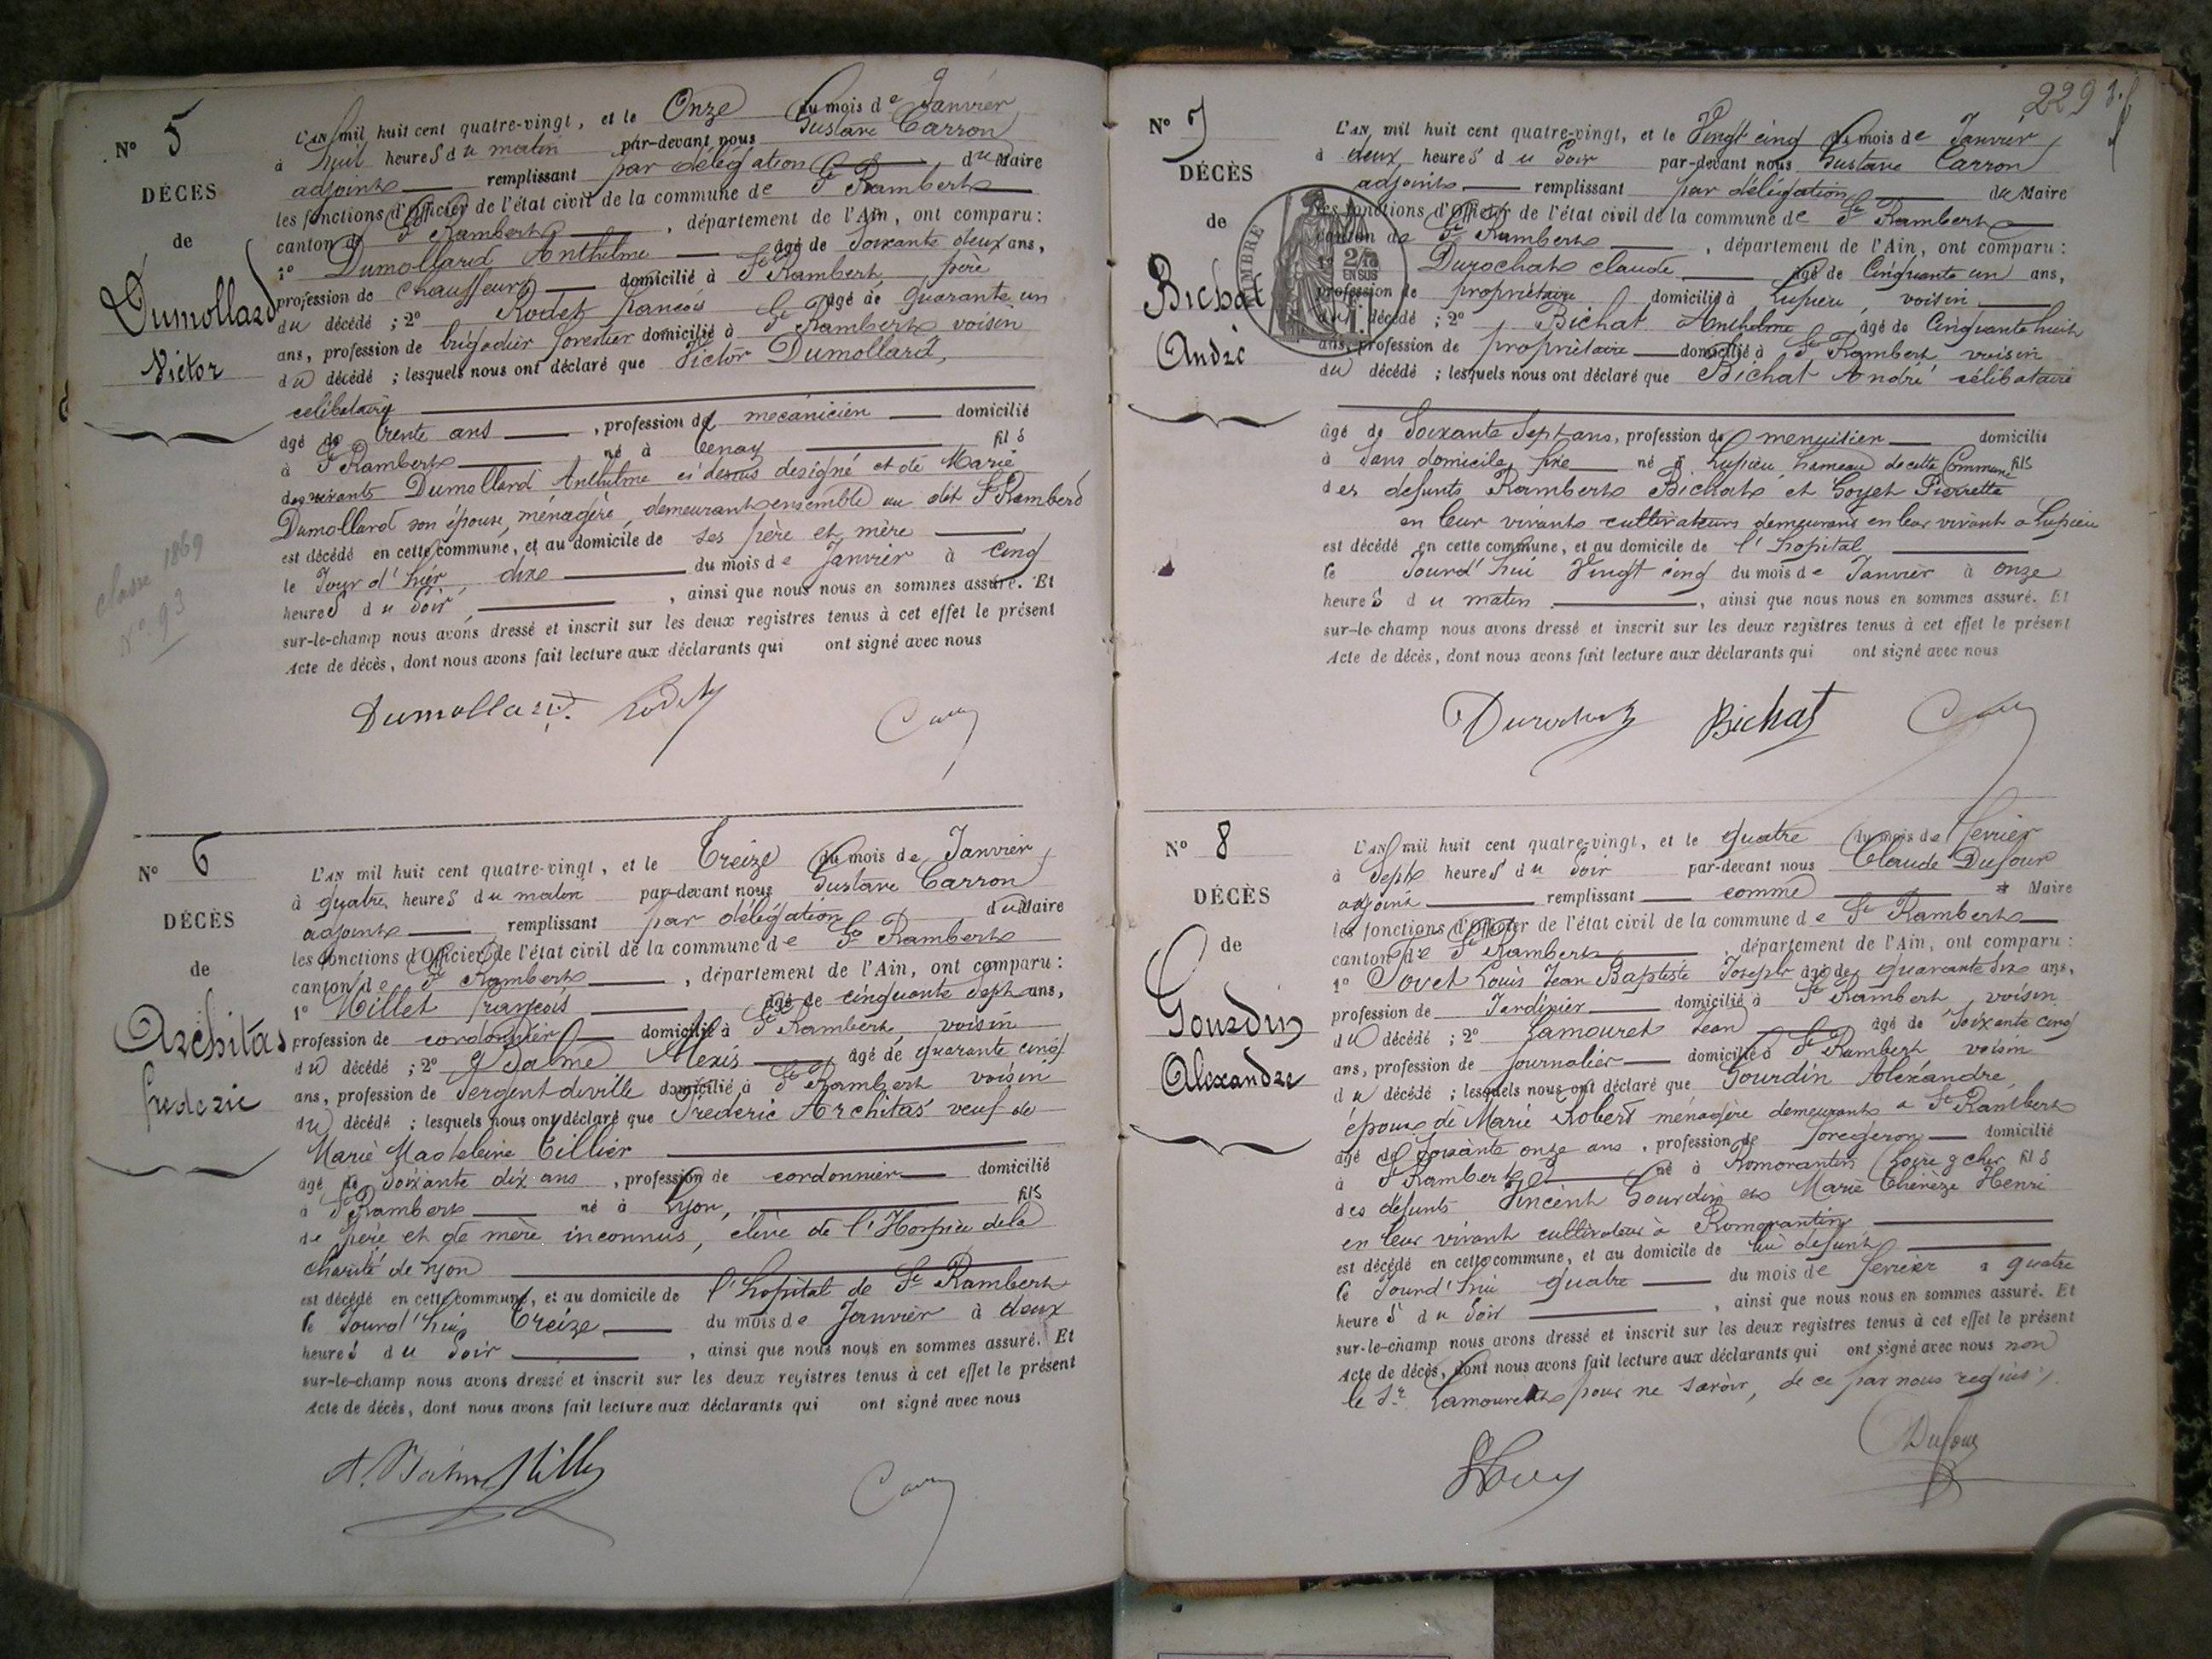 N° 5
DÉCÈS
de
Dumollard
Victor
classe 1869
N° 93
L'AN mil huit cent quatre-vingt, et le Onze du mois de Janvier
à huit heures du matin par-devant nous Gustave Carron
adjoint remplissant par délégation du Maire
les fonctions d'Officier de l'état civil de la commune de St Rambert
canton de St Rambert, département de l'Ain, ont comparu :
1° Dumollard Anthelme âgé de Soixante deux ans,
profession de chauffeur domicilié à St Rambert, père
du décédé ; 2° Rodet francois âgé de quarante un
ans, profession de brigadier forestier domicilié à St Rambert voisin
du décédé ; lesquels nous ont déclaré que Victor Dumollard,
celibataire
âgé de trente ans, profession de mecanicien domicilié
à St Rambert né à Tenay fils
des vivants Dumollard Anthelme ci dessus designé et de Marie
Dumollard son épouse, ménagère, demeurant ensemble au dit St Rambert
est décédé en cette commune, et au domicile de ses père et mère
le Jour d'hier, dix du mois de Janvier à cinq
heures du Soir, ainsi que nous nous en sommes assuré. Et
sur-le-champ nous avons dressé et inscrit sur les deux registres tenus à cet effet le présent
Acte de décès, dont nous avons fait lecture aux déclarants qui ont signé avec nous
Dumollard. Rodet
N° 6
DÉCÈS
de
Architas
frederic
L'AN mil huit cent quatre-vingt, et le Treize du mois de Janvier
à quatre heures du matin par-devant nous Gustave Carron
adjoint remplissant par délégation du Maire
les fonctions d'Officier de l'état civil de la commune de St Rambert
canton de St Rambert, département de l'Ain, ont comparu :
1° Millet françois âgé de cinquante Sept ans,
profession de cordonnier domicilié à St Rambert, voisin
du décédé ; 2° Balme Alexis, âgé de quarante cinq
ans, profession de Sergent de ville domicilié à St Rambert voisin
du décédé ; lesquels nous ont déclaré que Frederic Architas veuf de
Marie Madeleine Tillier
âgé de Soixante dix ans, profession de cordonnier domicilié
à St Rambert né à Lyon, fils
de père et de mère inconnus, élève de l'Hospice de la
charité de Lyon
est décédé en cette commune, et au domicile de l'hopital de St Rambert
le Jourd'hui Treize du mois de Janvier à deux
heures du Soir, ainsi que nous nous en sommes assuré. Et
sur-le-champ nous avons dressé et inscrit sur les deux registres tenus à cet effet le présent
Acte de décès, dont nous avons fait lecture aux déclarants qui ont signé avec nous
A. Balme Millet
229
N° 7
DÉCÈS
de
Bichat
André
TIMBRE
2/10
EN SUS
L'AN mil huit cent quatre-vingt, et le Vingt cinq du mois de Janvier
à deux heures du Soir par-devant nous Gustave Carron
adjoint remplissant par délégation du Maire
les fonctions d'Officier de l'état civil de la commune de St Rambert
canton de St Rambert, département de l'Ain, ont comparu :
1° Durochat claude âgé de Cinquante un ans,
profession de propriétaire domicilié à Lupieu, voisin
du décédé ; 2° Bichat Anthelme âgé de Cinquante huit
ans, profession de propriétaire domicilié à St Rambert voisin
du décédé ; lesquels nous ont déclaré que Bichat André célibataire
âgé de Soixante Sept ans, profession de menuisier domicilié
à Sans domicile fixe né à Lupieu hameau de cette Commune fils
des defunts Rambert Bichat et Goyet Pierrette
en leur vivant cultivateurs demeurant en leur vivant a Lupieu
est décédé en cette commune, et au domicile de l'hopital
le Jourd'hui Vingt cinq du mois de Janvier à onze
heures du matin, ainsi que nous nous en sommes assuré. Et
sur-le-champ nous avons dressé et inscrit sur les deux registres tenus à cet effet le présent
Acte de décès, dont nous avons fait lecture aux déclarants qui ont signé avec nous
Durochat Bichat
N° 8
DÉCÈS
de
Gourdin
Alexandre
L'AN mil huit cent quatre-vingt, et le quatre du mois de fevrier
à Sept heures du Soir par-devant nous Claude Dufour
adjoint remplissant comme Maire
les fonctions d'Officier de l'état civil de la commune de St Rambert
canton de St Rambert, département de l'Ain, ont comparu :
1° Louis Jean Baptiste Joseph âgé de quarante ans,
profession de Jardinier domicilié à St Rambert, voisin
du décédé ; 2° Lamouret Jean âgé de Soixante cinq
ans, profession de Journalier domicilié à St Rambert, voisin
du décédé ; lesquels nous ont déclaré que Gourdin Alexandre,
époux de Marie Robert ménagère demeurant a St Rambert
âgé de Soixante onze ans, profession de forgeron domicilié
à St Rambert né à Romorantin (Loire & cher fils
des defunts Vincent Gourdin et Marie Thérèze Henri
en leur vivant cultivateur à Romorantin
est décédé en cette commune, et au domicile de lui defunt
le Jourd'hui quatre du mois de fevrier à quatre
heures du Soir, ainsi que nous nous en sommes assuré. Et
sur-le-champ nous avons dressé et inscrit sur les deux registres tenus à cet effet le présent
Acte de décès, dont nous avons fait lecture aux déclarants qui ont signé avec nous non
le Sr Lamouret pour ne savoir, de ce par nous requis
Dufour